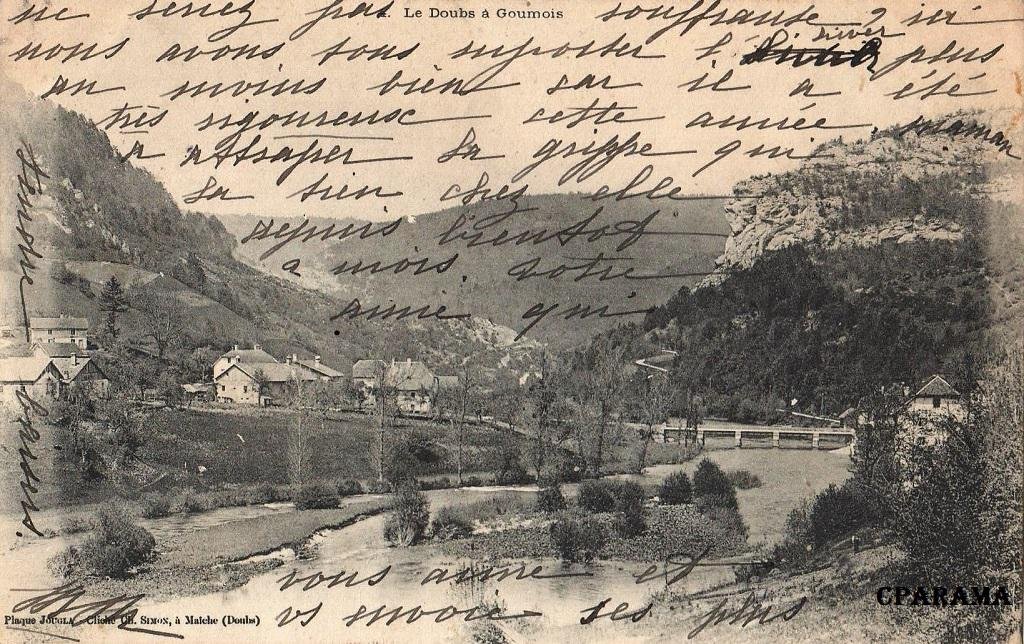 2. Le Doubs à Goumois
ne serez pas souffrante, ici
nous avons tous supporter l'hiver plus
au moins bien car il a été
très rigoureuse cette année, maman
a attraper la grippe qui
la tien chez elle
depuis bientot
2 mois, votre
amie qui
vous aime et
vs envoie ses plus
baisers
Plaque JOUGLA - Cliché CH. SIMON, à Maîche (Doubs)
CPARAMA